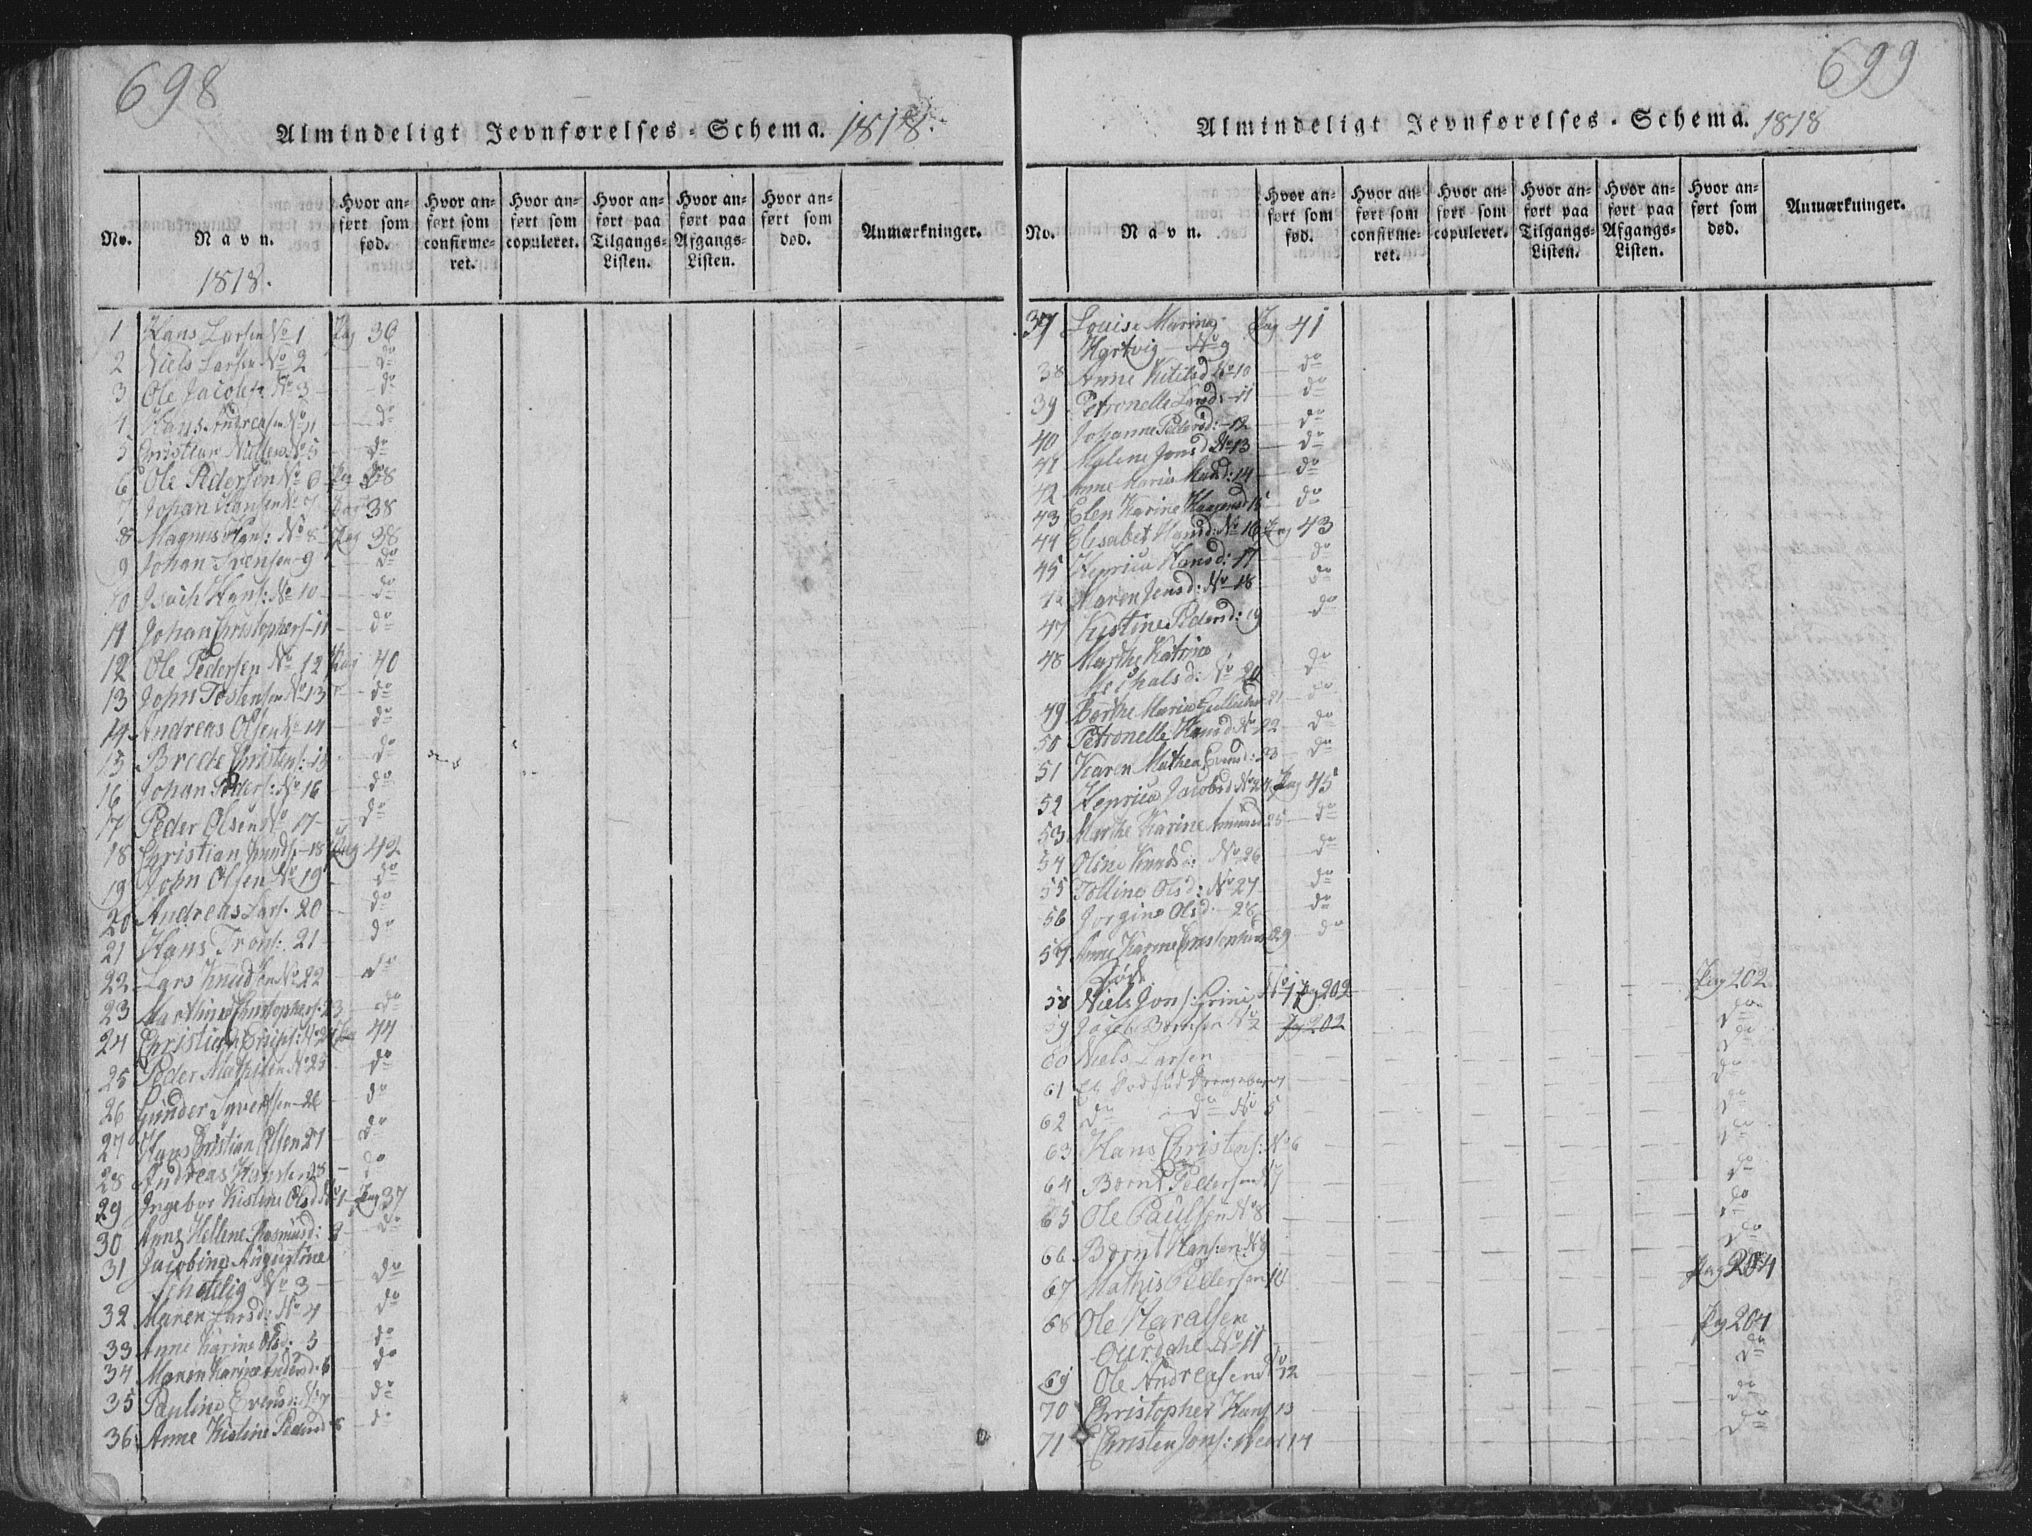 698
Almindeligt Jevnførelses-Schema. 1818.
No.
Navn.
Hvor anført som fød.
Hvor anført som confirmeret.
Hvor anført som copuleret.
Hvor anført paa Tilgangs-Listen.
Hvor anført paa Afgangs-Listen.
Hvor anført som død.
Anmærkninger.
1818.
1 Hans Larsen No 1 Pag 36
2 Niels Larsen No 2 do
3 Ole Jacobs. No 3 do
4 Hans Andreasen No 4 do
5 Christian No 5 do
6 Ole Pedersen No 6 Pag 38
7 Johan Hansen No 7 Pag 38
8 Magnus Hans: No 8 Pag 38
9 Johan Svensen 9 do
10 Isach Hans: No 10 do
11 Johan Christophers 11 do
12 Ole Pedersen No 12 Pag 40
13 John Tostensen No 13 do
14 Andreas Olsen No 14 do
15 Brede Christens: 15 do
16 Johan Peders: No 16 do
17 Peder Olsen No 17 do
18 Christian Knuds 18 Pag 42
19 John Olsen No 19 do
20 Andreas Lars. 20 do
21 Hans Trons: 21 do
22 Lars Knudsen No 22 do
23 Marthin Christophers. 23 do
24 Christian No 24 Pag 44
25 Peder Mathisen No 25 do
26 Gunder Syversen 26 do
27 Hans Christian Olsen 27 do
28 Andreas Hansen 28 do
29 Ingebor Kistine Olsd No 1 Pag 37
30 Anne Hellene Rasmusd: 2 do
31 Jacobine Augustine
No 3 do
32 Maren Larsd: No 4 do
33 Anne Karine Olsd: 5 do
34 Maren Karine 6 do
35 Pauline Evensd: No 7 do
36 Anne Kistine Pedersd 8 do
699
Almindeligt Jevnførelses-Schema. 1818
No.
Navn.
Hvor anført som fød.
Hvor anført som confirmeret.
Hvor anført som copuleret.
Hvor anført paa Tilgangs-Listen.
Hvor anført paa Afgangs-Listen.
Hvor anført som død.
Anmærkninger.
37 Louise Marine Pag 41
Hartvig No 9
38 Anne No 10 do
39 Petronelle Larsd: 11 do
40 Johanne Pedersd: 12 do
41 Malene Jonsd No 13 do
42 Anne Maria 14 do
43 Elen Karine 15 do
44 Elisabet Hansd: No 16 Pag 43
45 Henrica Hansd: 17 do
Maren Jensd: No 18 do
47 Kistine Pedersd: 19 do
48 Marthe Katrine
Michalsd: No 20 do
49 Berthe Maria 21 do
50 Petronelle Hansd No 22 do
51 Karen Mathea Evensd: 23 do
52 Henrica Jacobsd No 24 Pag 45
53 Marthe Karine 25 do
54 Oline Knudsd: No 26 do
55 Olsd: No 27 do
56 Jorgine Olsd. 28 do
57 Anne Karine Christophersd 29 do
Døde
58 Niels Jons: No 1 Pag 202 Pag 202
59 No 2 Pag 202 do
60 Niels Larsen do
61 Et Dødfød Drengebarn do
62 do do No 5 do
63 Hans Christens: No 6 do
64 Bernt Pedersen No 7 do
65 Ole Paulsen No 8 do
66 Bernt Hansen No 9 do
67 Mathis Pedersen 10 Pag 204
68 Ole Haralsen Pag 204
No 11 do
69 Ole Andreasen No 12 do
70 Christopher Hans 13 do
71 Christen Jons: 14